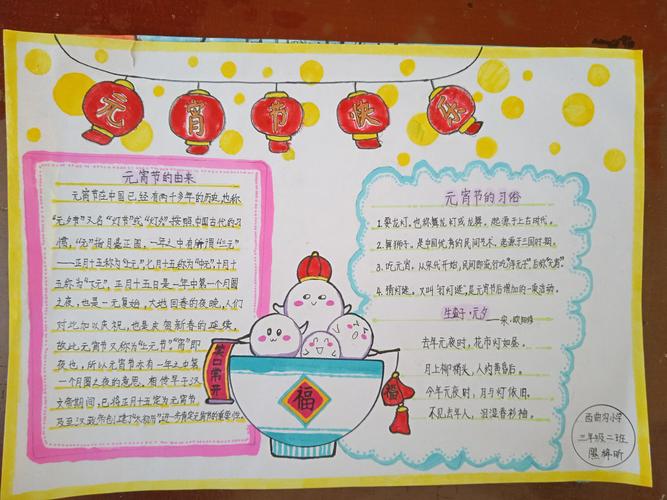 元宵节快乐
元宵节的由来
元宵节在中国已经有两千多年的历史,也称
"元夕节"又名"灯节"或"灯火".按照中国古代的习
惯,"元"指月亮正圆,一年之中有所谓"三元"
——正月十五称为"上元",七月十五称为"中元",十月十
五称为"下元"。正月十五是一年中第一个月圆
之夜,也是一元复始,大地回春的夜晚,人们
对此加以庆祝,也是庆贺新春的延续。
故此元宵节又称为"上元节""宵"即
夜也,所以元宵节亦有一年之中第
一个月圆之夜的意思。相传早于汉
文帝期间,已将正月十五定为元宵节,
及至汉武帝创建
元宵节的习俗
1.耍龙灯,也称舞龙灯或龙舞,起源于上古时代。
2.舞狮子,是中国优良的民间艺术,起源于三国时期。
3.吃元宵,从宋代开始,民间即流行吃"浮元子"后称"元宵"。
4.猜灯谜,又叫"打灯谜",是元宵节后增加的一项活动。
生查子·元夕
——宋·欧阳修
去年元夜时,花市灯如昼。
月上柳梢头,人约黄昏后。
今年元夜时,月与灯依旧。
不见去年人,泪湿春衫袖。
笑口常开
福
福
西曲沟小学
三年级二班